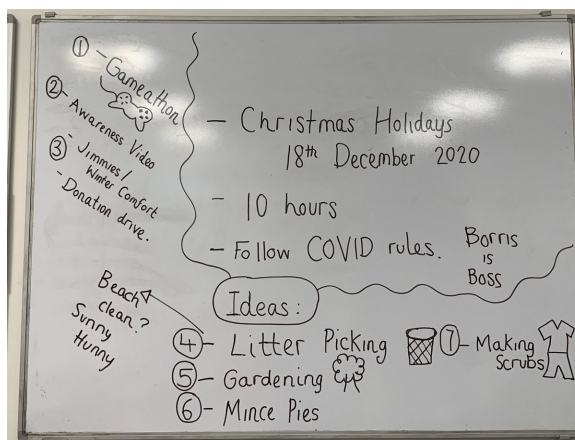 ① - Gameathon
② - Awareness Video
③ - Jimmies /
Winter Comfort
- Donation drive.
- Christmas Holidays
18th December 2020
- 10 hours
- Follow COVID rules.
Borris
is
Boss
Ideas:
④ - Litter Picking
Beach
clean?
Sunny
Hunny
⑤ - Gardening
⑥ - Mince Pies
⑦ - Making
Scrubs